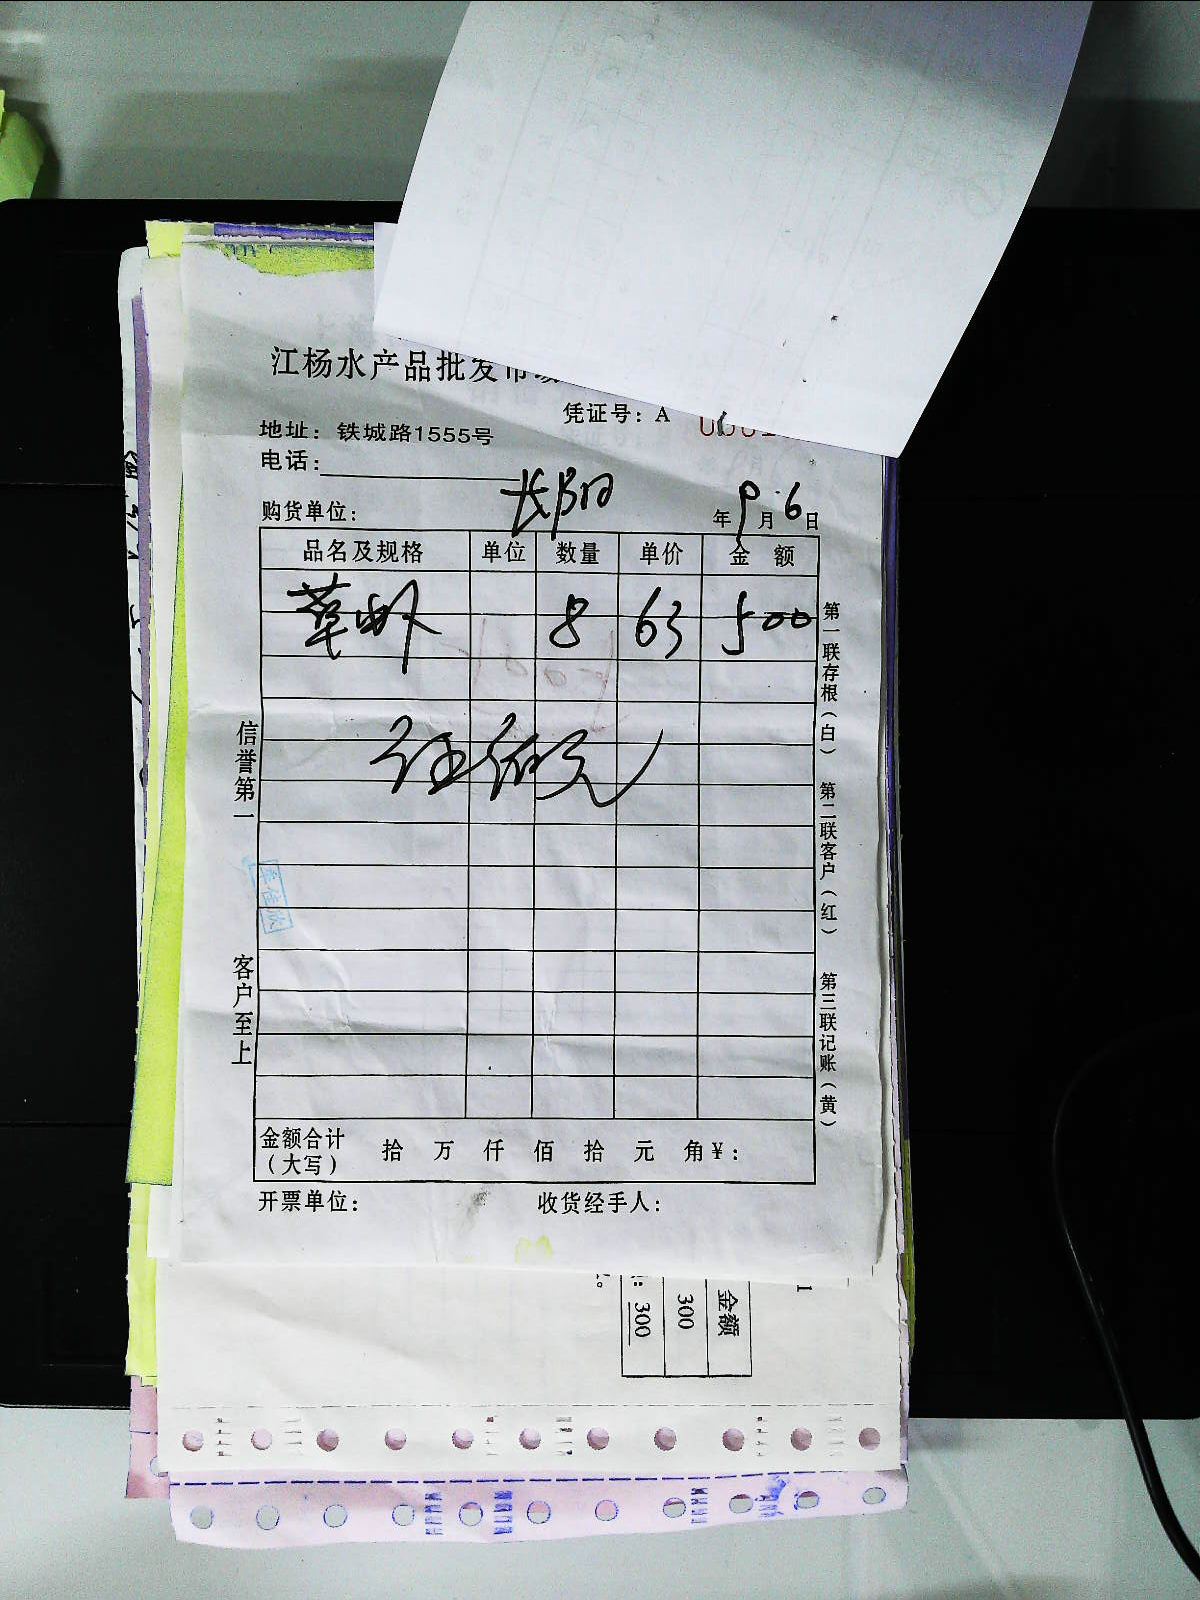 江杨水产品批发市场
凭证号：A
地址：铁城路1555号
电话：
购货单位：长阳 年9月6日
品名及规格 单位 数量 单价 金额
草虾 8 63 500
信誉第一
客户至上
李佳欣
第一联存根（白）
第二联客户（红）
第三联记账（黄）
金额合计（大写） 拾 万 仟 佰 拾 元 角 ¥：
开票单位： 收货经手人：
金额
300
300